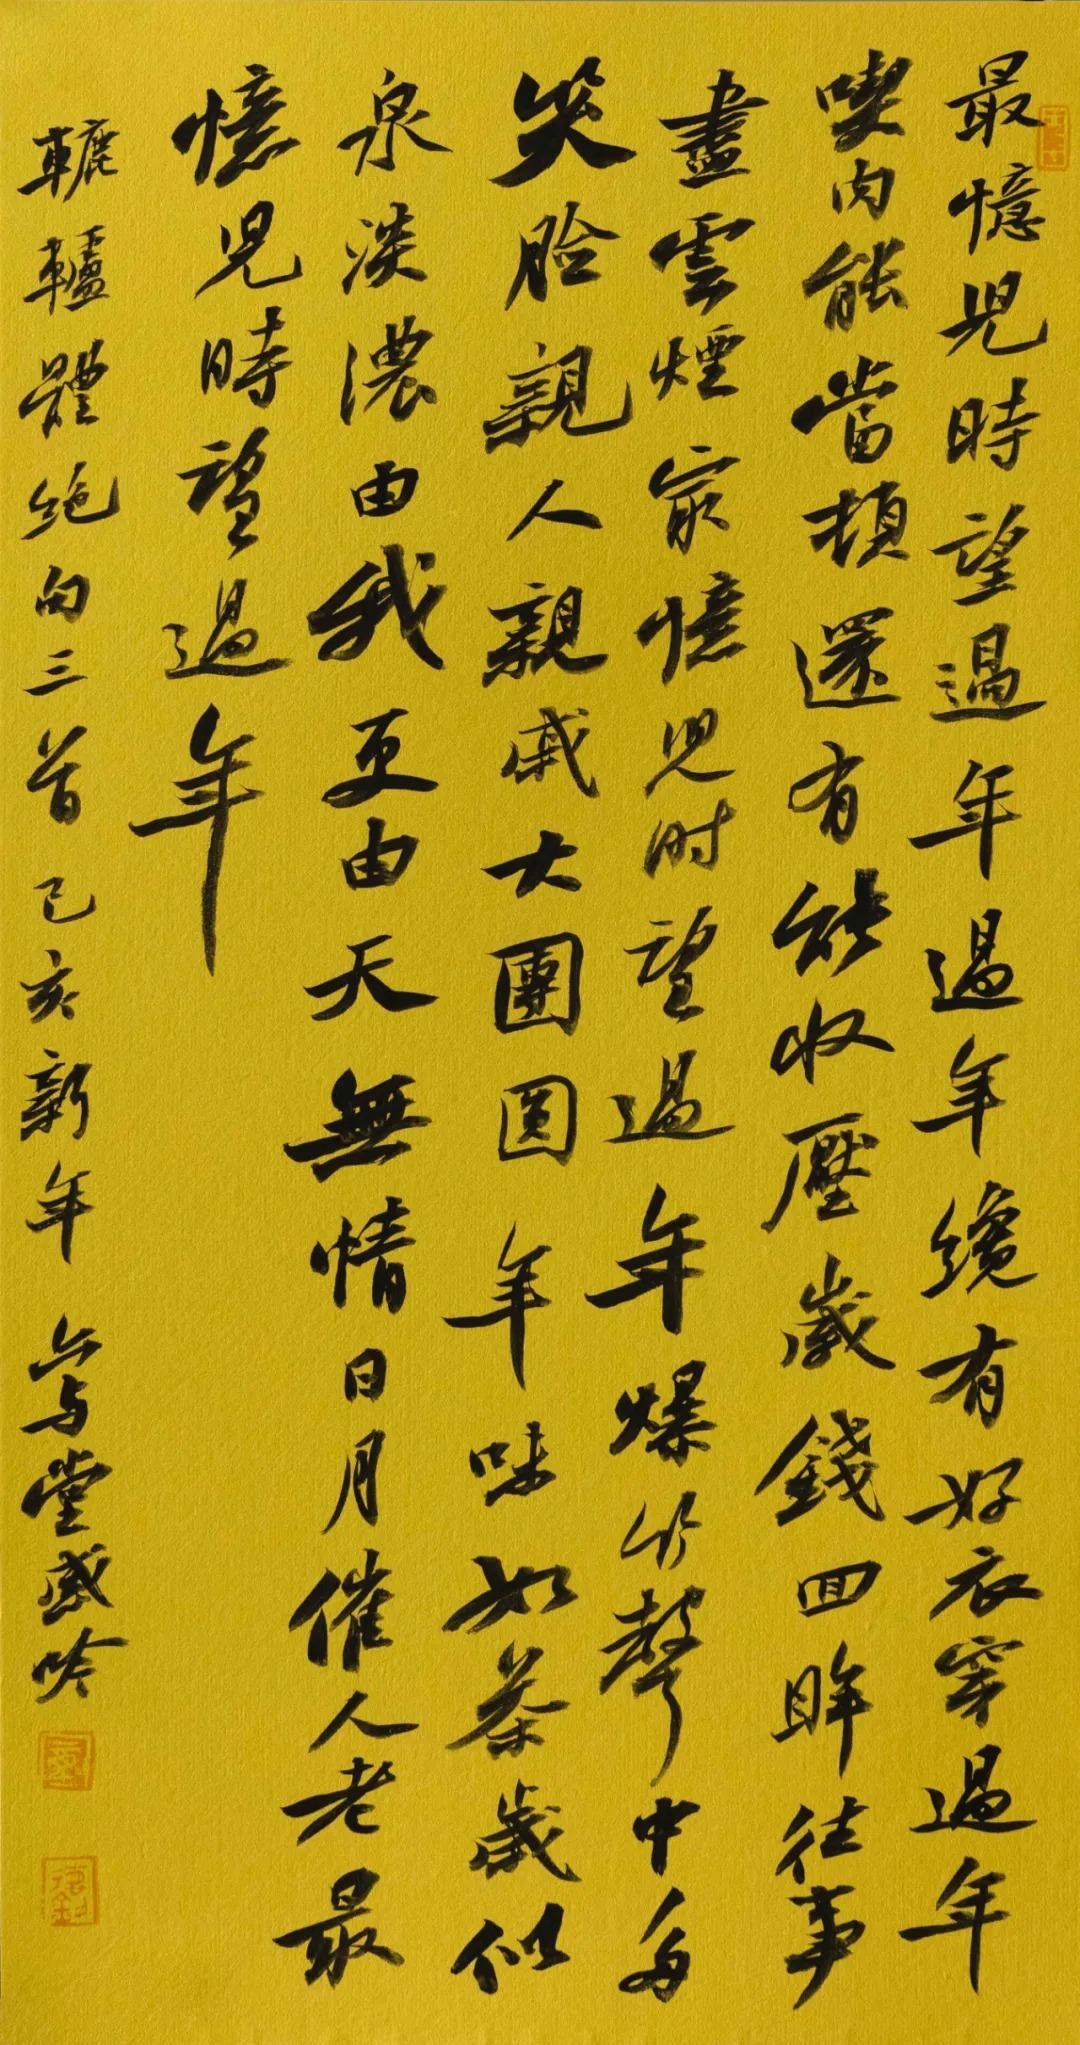 最憶児時望過年過年纔有好衣穿過年
喫肉能當頓還有能收壓歲錢回眸往事
盡雲煙最憶児时望過年爆竹聲中多
笑臉親人親戚大團圓年味如茶歲似
泉淡濃由我更由天無情日月催人老最
憶児時望過年
轆轤體绝句三首己亥新年 堂感吟